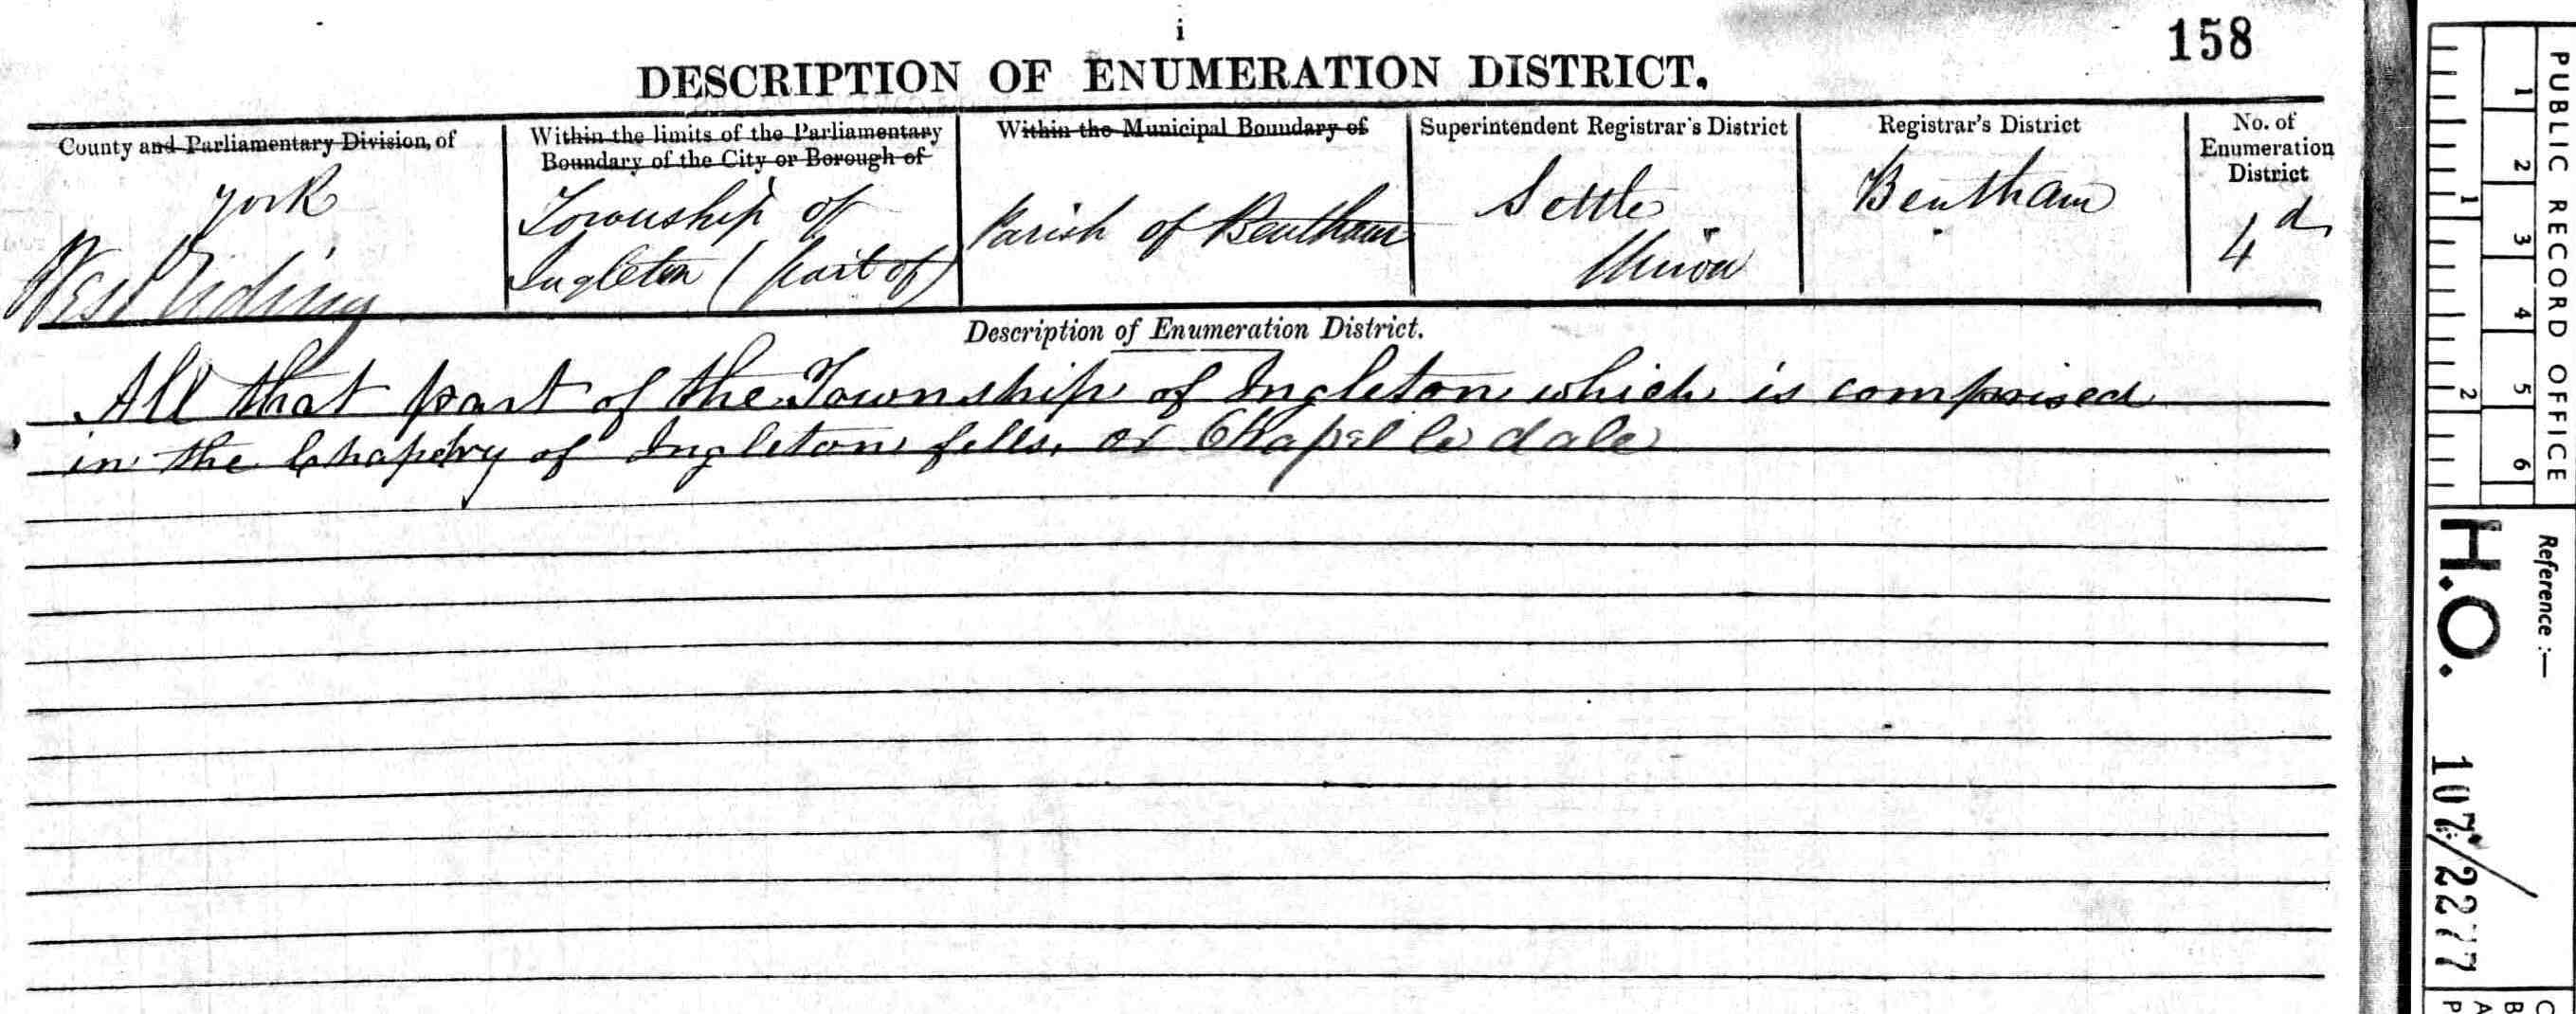 i
158
DESCRIPTION OF ENUMERATION DISTRICT.
County and Parliamentary Division, of
york
West Riding
Within the limits of the Parliamentary
Boundary of the City or Borough of
Township of
Ingleton (part of)
Within the Municipal Boundary of
Parish of Bentham
Superintendent Registrar's District
Settle
Union
Registrar's District
Bentham
No. of
Enumeration
District
4d
Description of Enumeration District.
All that part of the Township of Ingleton which is comprised
in the Chapelry of Ingleton fells, or Chapel le dale
PUBLIC RECORD OFFICE
1 2 3 4 5 6
1 2
Reference :—
H.O. 107/2277